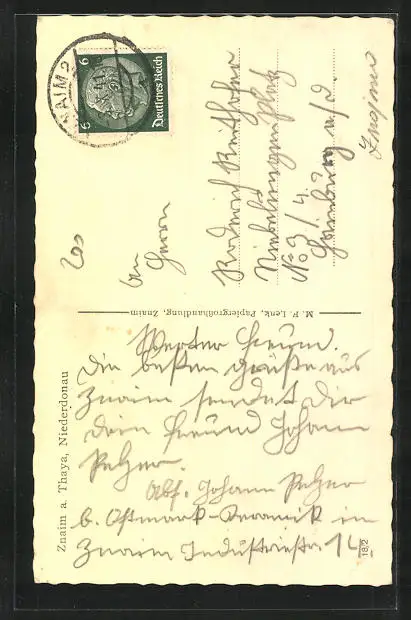 Znaim a. Thaya, Niederdonau
Werter Freund.
Die besten Grüße aus
Znaim sendet Dir
dein Freund Johann
Pelzer.
Abs. Johann Pelzer
b. Ostmark-Keramik in
Znaim Industriestr. 14
M. F. Lenk, Papiergroßhandlung, Znaim
18/2
ZNAIM 2
Deutsches Reich
6 6
An
Herrn
Nibelungenplatz
No 3/4.
Hainburg a/d.